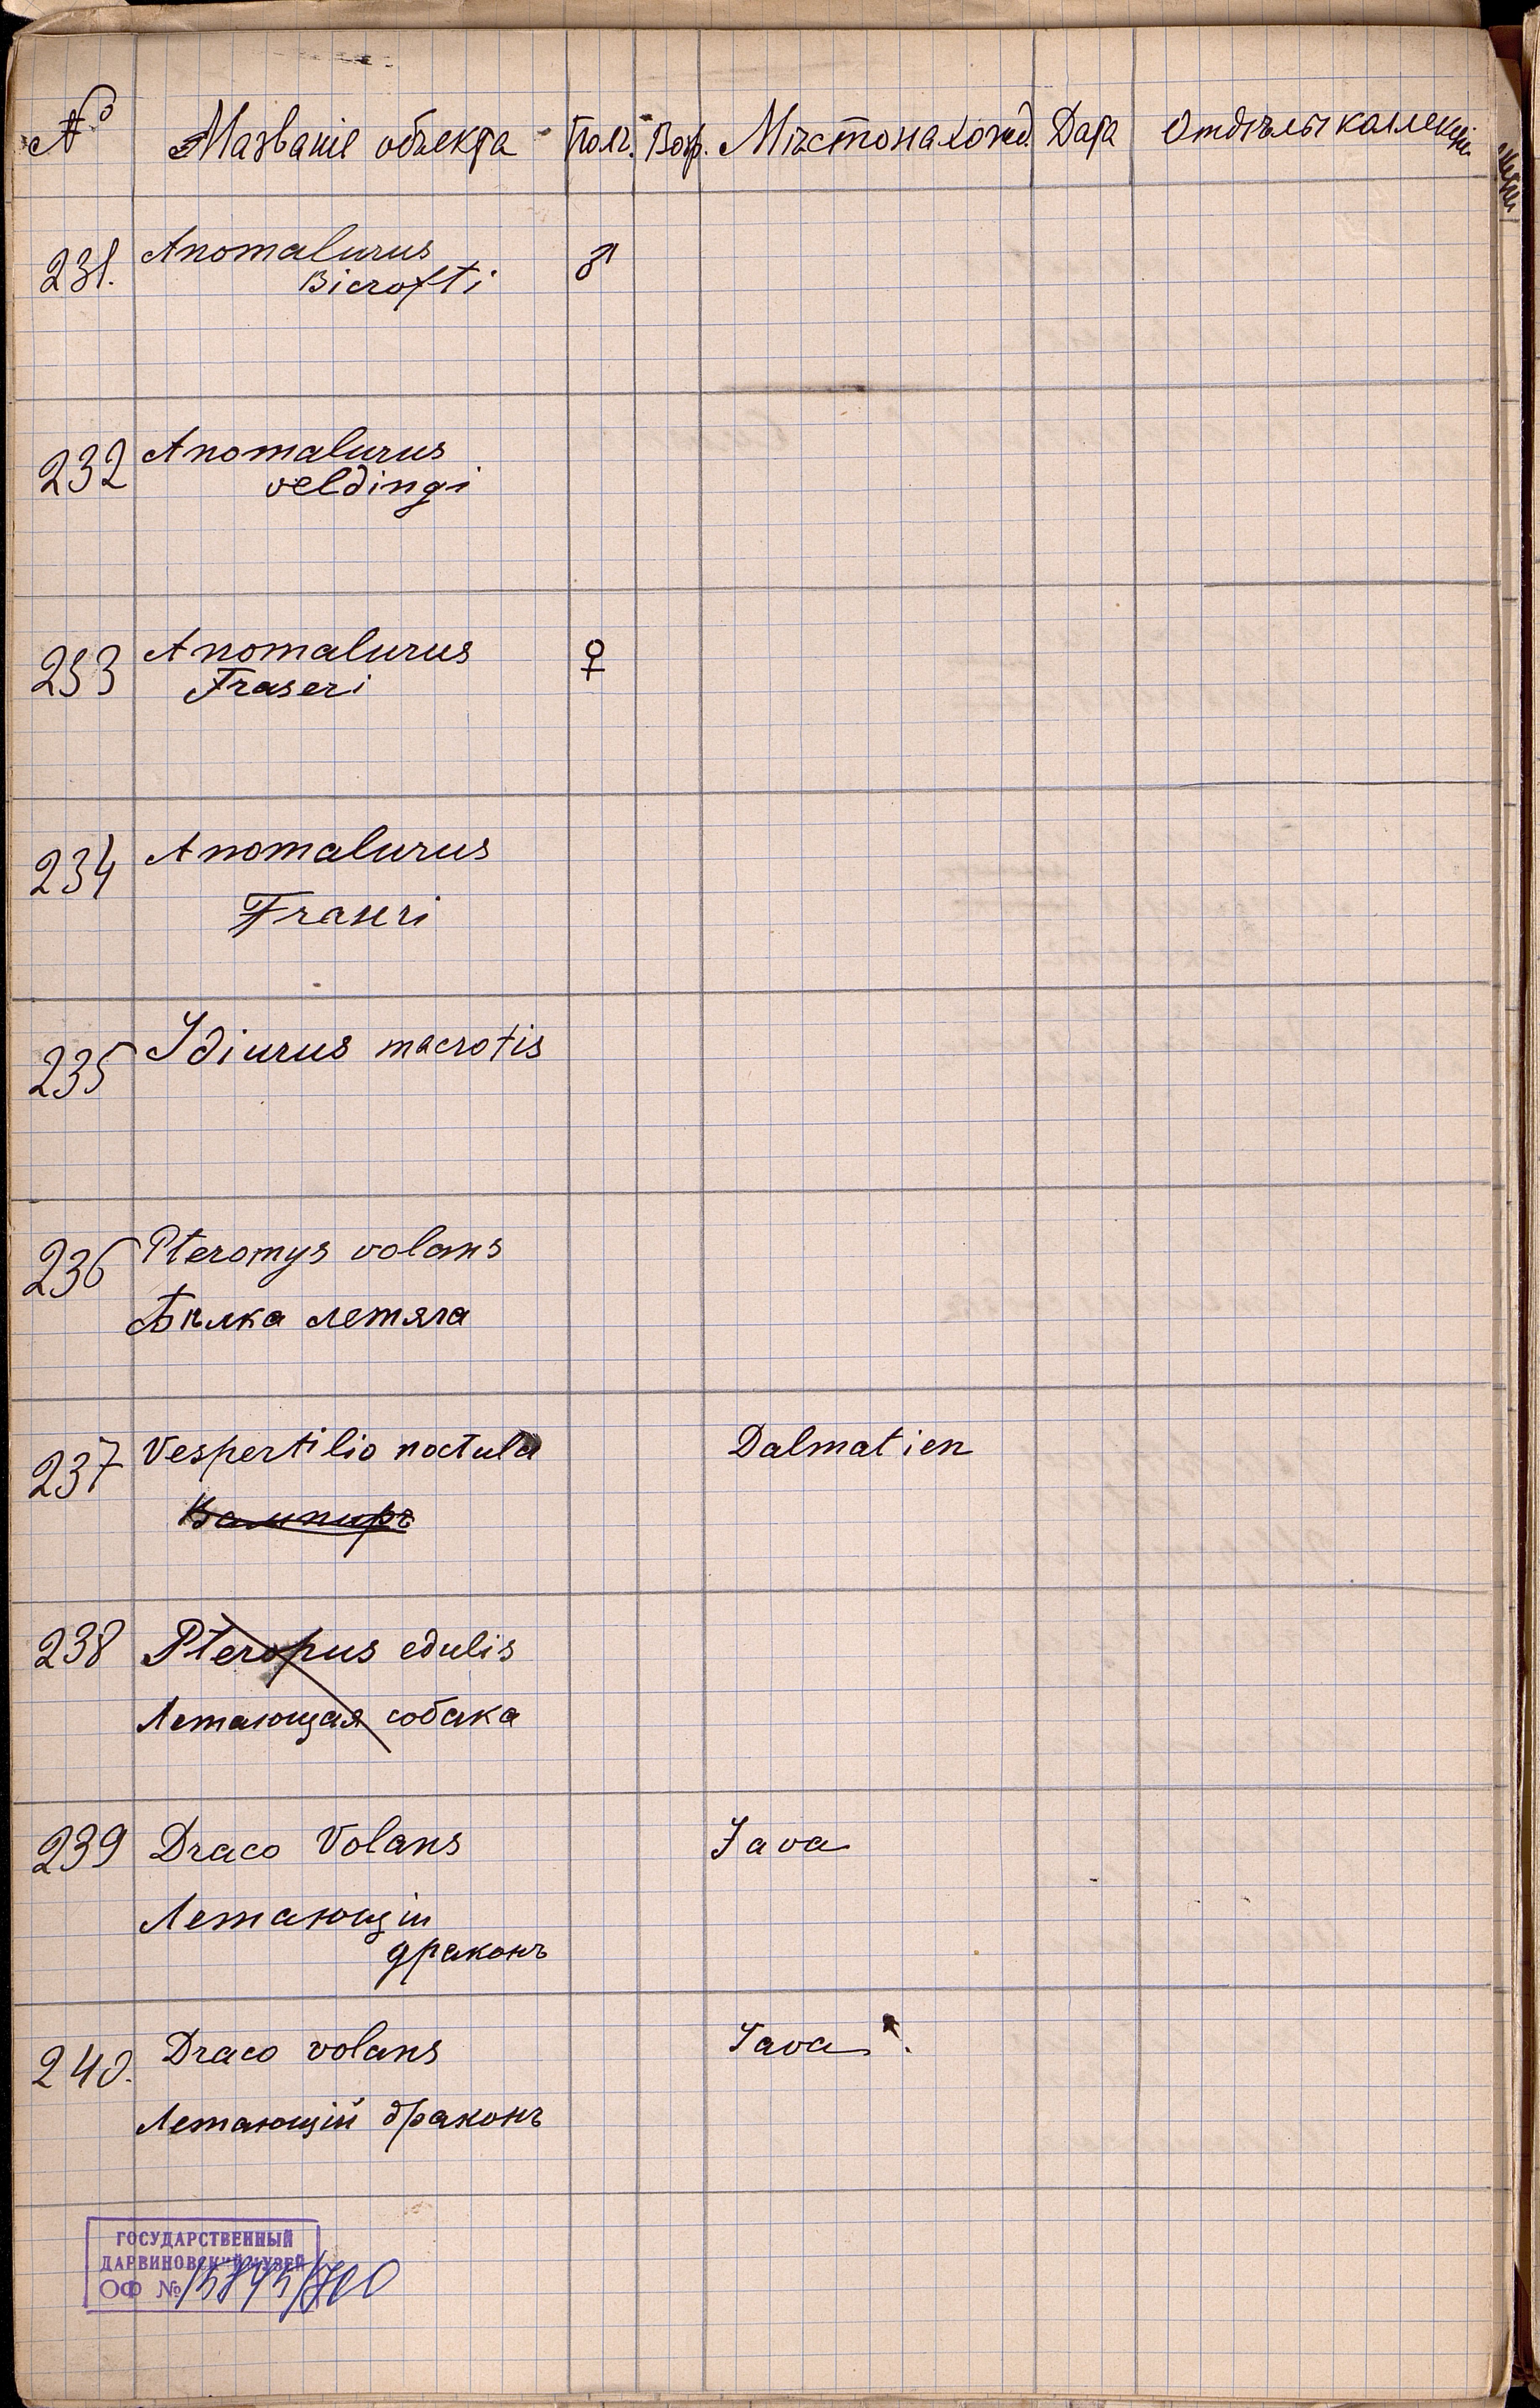 № Названіе объекта Полъ. Возр. Мѣстонахожд. Дата Отдѣлы коллекціи
231. Anomalurus ♂
Bicrofti
232 Anomalurus
veldingi
233 Anomalurus ♀
Fraseri
234 Anomalurus
Fraseri
235 Idiurus macrotis
236 Pteromys volans
Бѣлка летяга
237 Vespertilio noctula Dalmatien
Вампиръ
238 Pteropus edulis
Летающая собака
239 Draco Volans Java
Летающій
драконъ
240. Draco volans Java
Летающій драконъ
ГОСУДАРСТВЕННЫЙ
ДАРВИНОВСКИЙ МУЗЕЙ
ОФ №